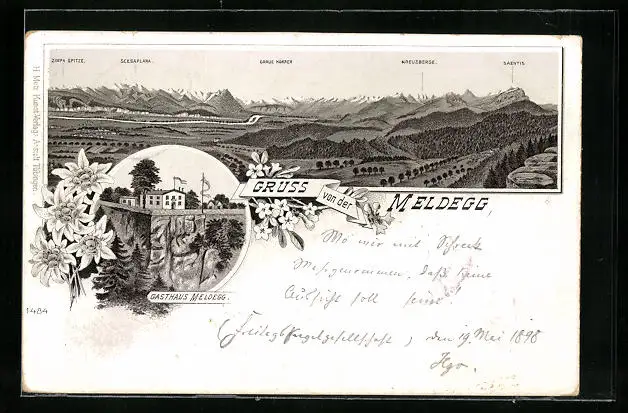 ZIMPA SPITZE. SCESAPLANA. GRAUE HÖRNER KREUZBERGE. SAENTIS
H. Metz Kunst-Verlags-Anstalt Tübingen.
GRUSS von der MELDEGG,
GASTHAUS MELDEGG.
1484
Wo wir mit Schreck
daß keine
Aussicht soll sein.
den 19. Mai 1898